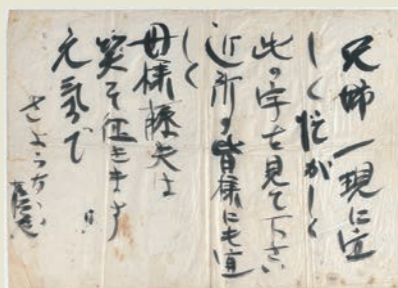 兄姉一現に宜
しく忙がしく
此の字を見て下さい
近所の皆様にも宜
しく
母様 夫は
笑って征きます
元氣で
さようなら